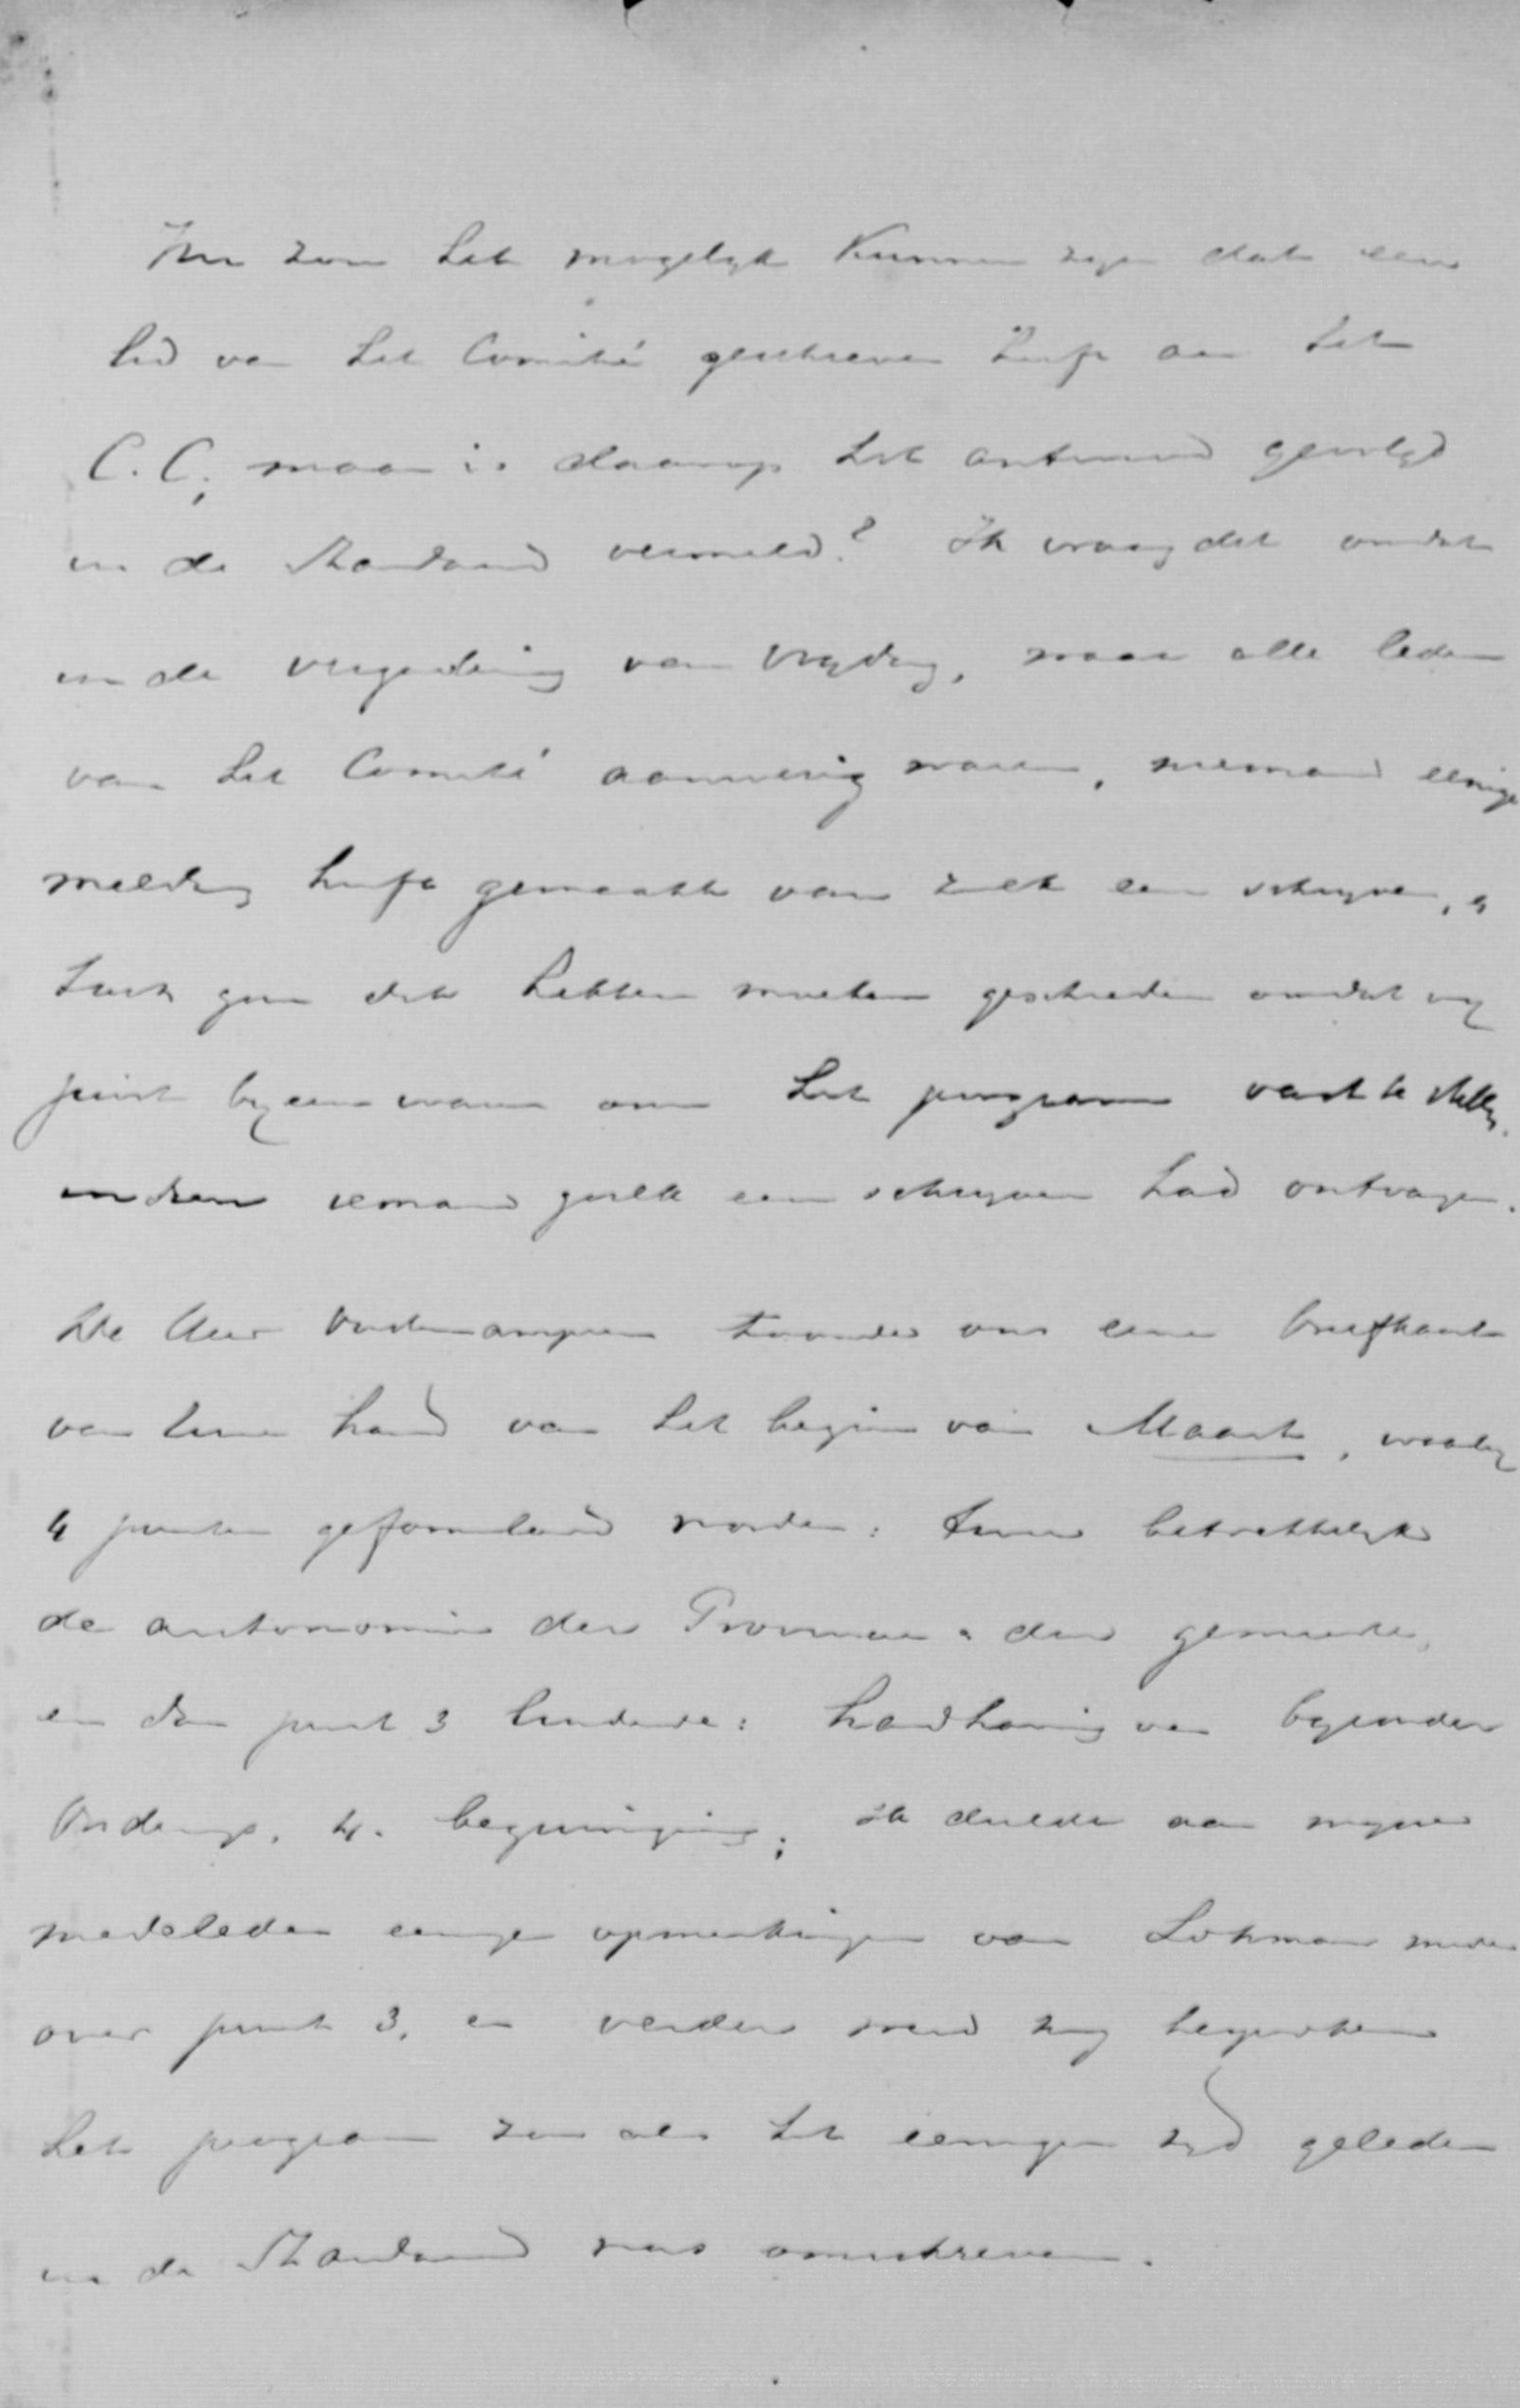 Nu zou het mogelijk kunnen zijn dat een
lid van het Comité geschreven heeft aan het
C. C., maar is daarop het antwoord gevolgd
in de Standaard vermeld? Ik vraag dit omdat
in de vergadering van Vrydag, waar alle leden
van het Comité aanwezig waren, niemand eenige
melding heeft gemaakt van zulk een schryven, en
toch zou dit hebben moeten geschieden omdat wy
juist byeen waren om het program vast te stellen,
indien iemand zulk een schryven had ontvangen.
De Heer toonde ons een briefkaart
van Uwe hand van het begin van Maart, waarby
4 punten geformuleerd worden: twee betrekkelyk
de autonomie der Provincie en der gemeente,
en dan punt 3 luidende: handhaving van byzonder
Onderwys. 4. bezuiniging; ik deelde aan myne
medeleden eenige opmerkingen van Lohman mede
over punt 3, en verder werd nog besproken
het program zoo als het eenigen tyd geleden
in de Standaard was omschreven.